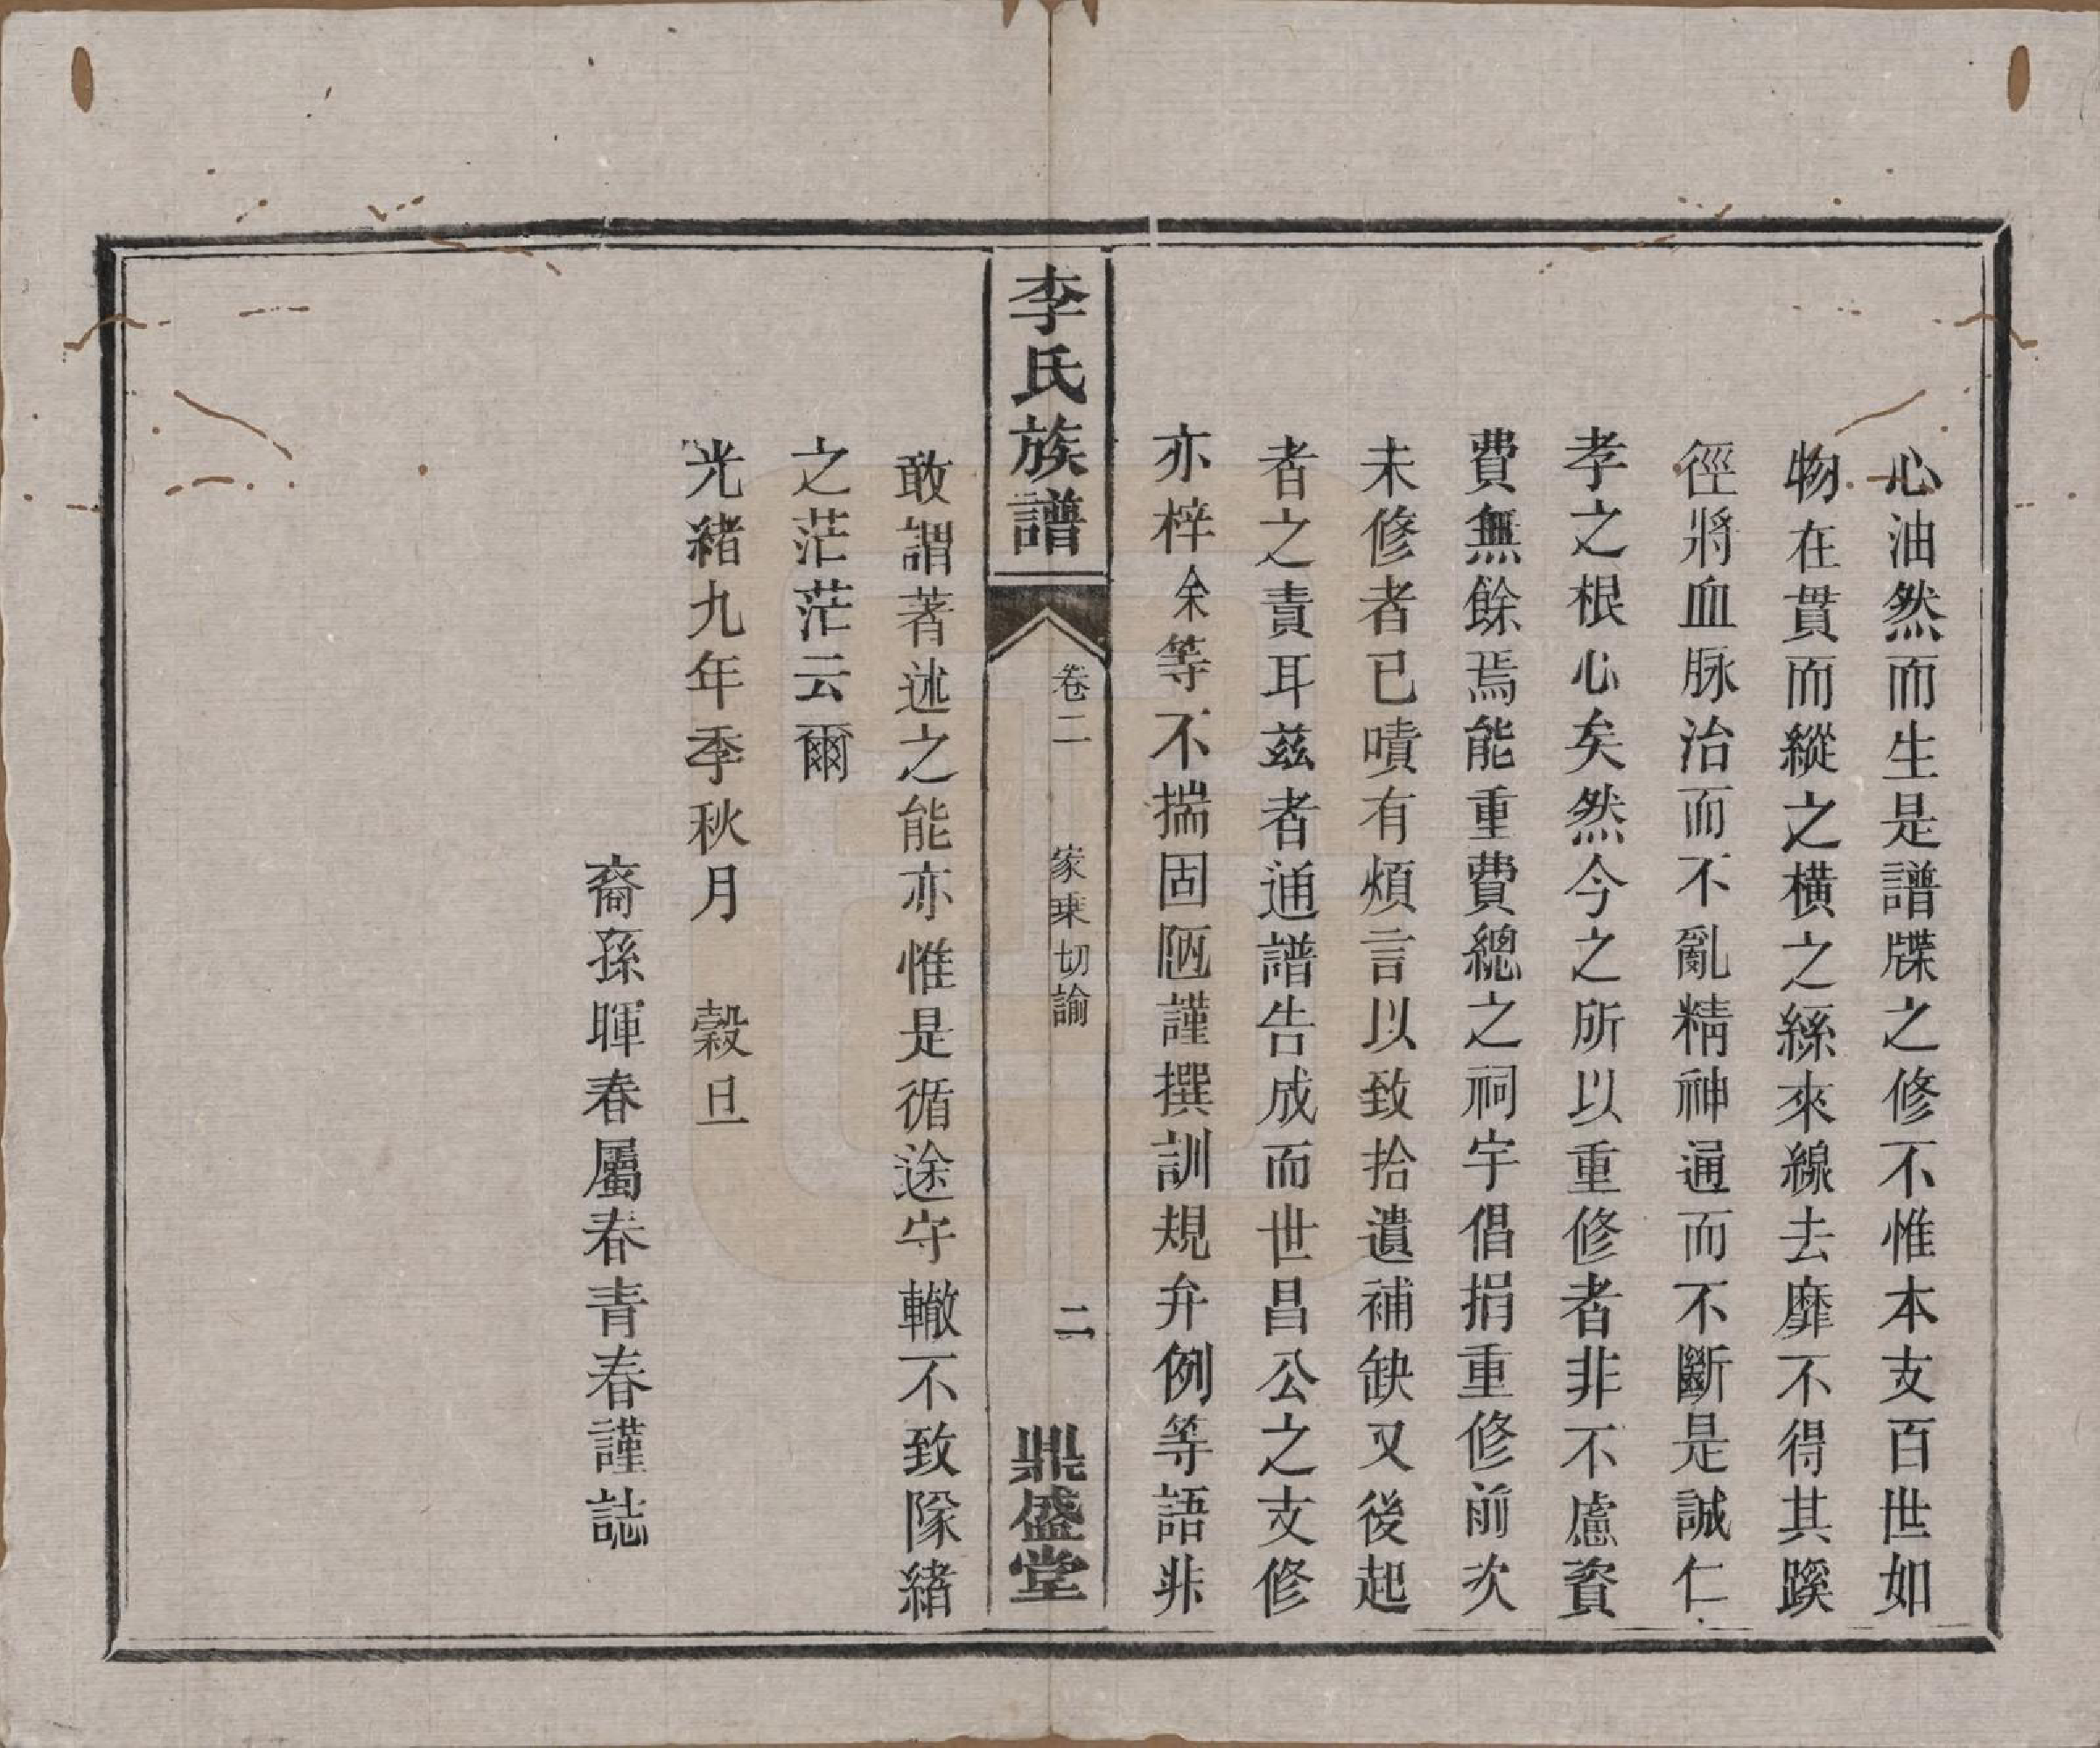 心油然而生是譜牒之修不惟本支百世如
物在貫而縱之橫之絲來線去靡不得其蹊
徑將血脉治而不亂精神通而不斷是誠仁
孝之根心矣然今之所以重修者非不慮資
費無餘焉能重費總之祠宇倡捐重修前次
未修者已嘖有煩言以致拾遺補缺又後起
者之責耳茲者通譜告成而世昌公之支修
亦梓余等不揣固陋謹撰訓規弁例等語非
李氏族譜
卷二 家乘切諭 二
鼎盛堂
敢謂著述之能亦惟是循途守轍不致隊緒
之茫茫云爾
光緒九年季秋月 穀旦
裔孫暉春屬春青春謹誌